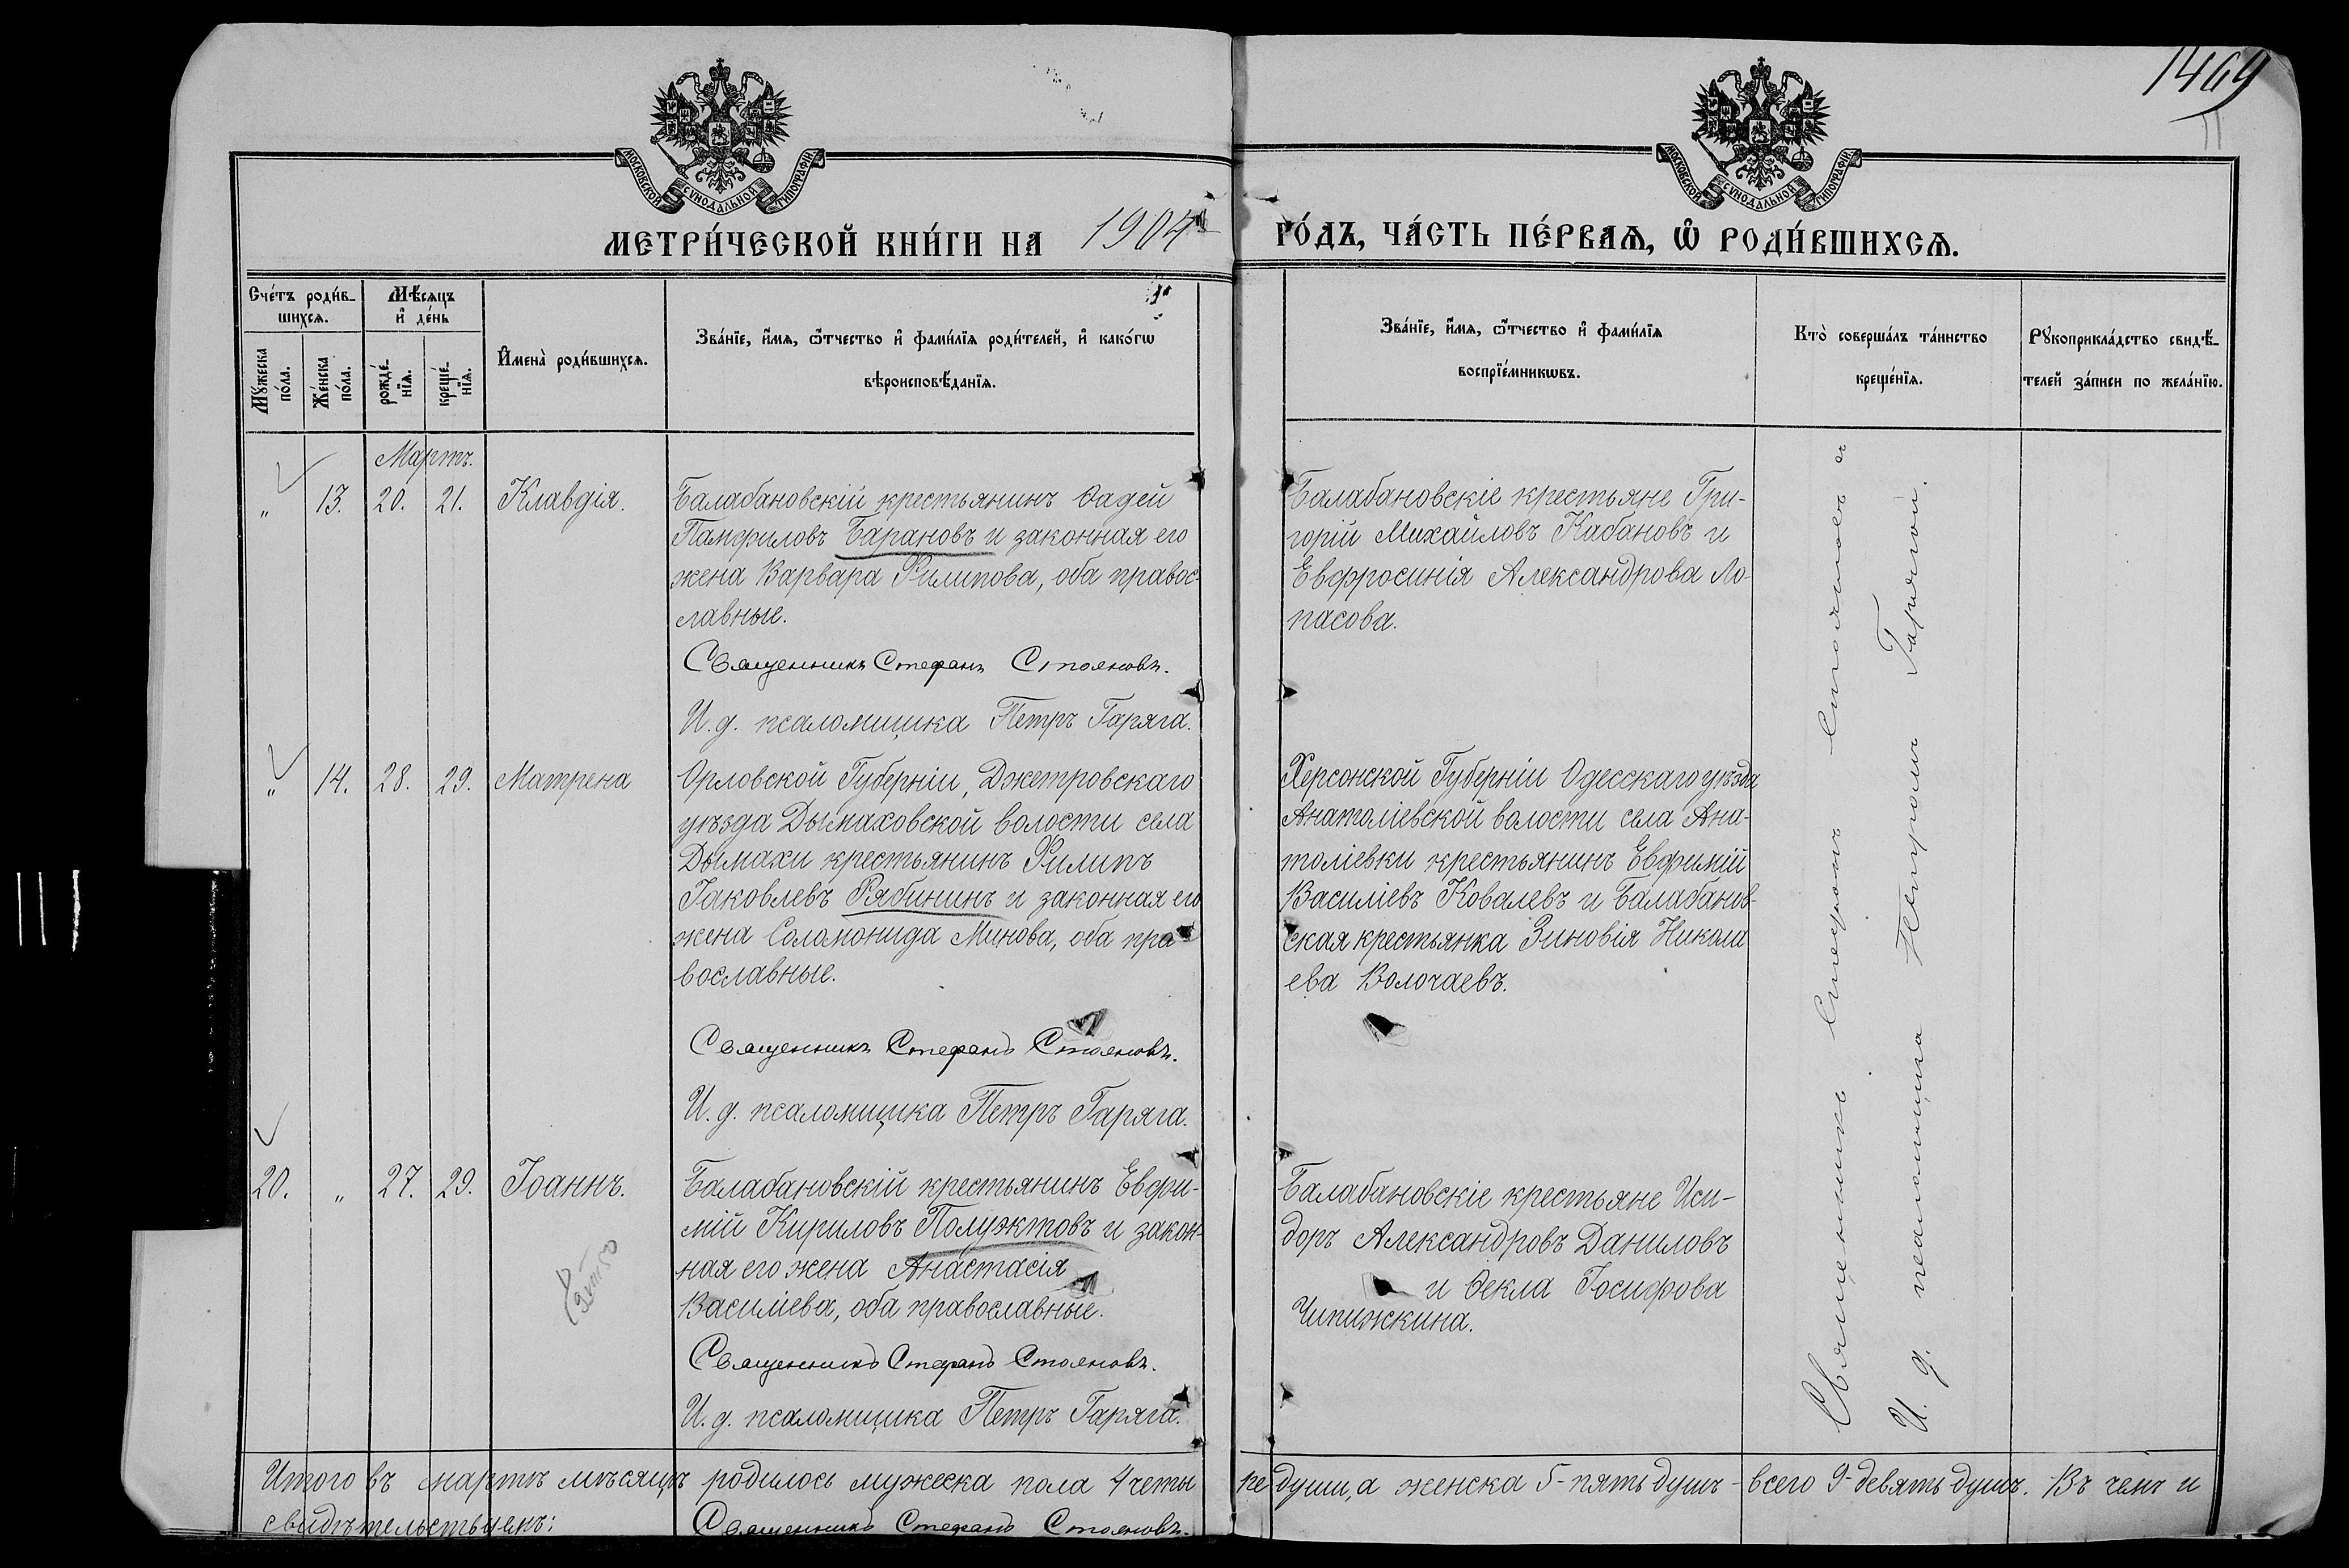 1469
МОСКОВСКОЙ СѴНОДАЛЬНОЙ ТИПОГРАФІИ.
МОСКОВСКОЙ СѴНОДАЛЬНОЙ ТИПОГРАФІИ.
МЕТРИ́ЧЕСКОЙ КНИ́ГИ НА 1904 ГО́ДЪ, ЧА́СТЬ ПЕ́РВАѦ, Ѽ РОДИ́ВШИХСѦ.
Сче́тъ роди́в-
шихсѧ.
Мѣ́сѧцъ
и҆ де́нь
Мꙋ́жеска
по́ла.
Же́нска
по́ла.
рожде́-
нїѧ.
креще́-
нїѧ.
И҆мена̀ роди́вшихсѧ.
Зва́нїе, и҆́мѧ, ѻ҆́тчество и҆ фами́лїѧ роди́телей, и҆ како́гѡ
вѣроисповѣ́данїѧ.
Зва́нїе, и҆́мѧ, ѻ҆́тчество и҆ фами́лїѧ
воспрїе́мникѡвъ.
Кто̀ соверша́лъ та́инство
креще́нїѧ.
Рꙋкоприкла́дство свидѣ́-
телей за́писи по жела́нїю.
Мартъ.
" 13. 20. 21. Клавдія.
Балабановскій крестьянинъ Ѳадей
Памфиловъ Барановъ и законная его
жена Варвара Филипова, оба правос-
лавные.
Священникъ Стефанъ Стояновъ.
И. д. псаломщика Петръ Гаряга.
Балабановскіе крестьяне Гри-
горій Михайловъ Кабановъ и
Евфросинія Александрова Ло-
пасова.
" 14. 28. 29. Матрена
Орловской Губерніи, Джетровскаго
уѣзда Дымаховской волости села
Дымахи крестьянинъ Филипъ
Іаковлевъ Рябининъ и законная его
жена Соломонида Минова, оба пра-
вославные.
Священникъ Стефанъ Стояновъ.
И. д. псаломщика Петръ Гаряга.
Херсонской Губерніи Одесскаго уѣзда
Анатоліевской волости села Ана-
толіевки крестьянинъ Евфимій
Василіевъ Ковалевъ и Балабанов-
ская крестьянка Зиновія Никола
ева Волочаевъ.
20. " 27. 29. Іоаннъ.
Балабановскій крестьянинъ Евфи-
мій Кириловъ Полуэктовъ и закон-
ная его жена Анастасія
Василіева, оба православные.
Священникъ Стефанъ Стояновъ.
И. д. псаломщика Петръ Гаряга.
Балабановскіе крестьяне Иси-
доръ Александровъ Даниловъ
и Ѳекла Іосифова
Чипижкина.
Священникъ Стефанъ Стояновъ с
И. д. псаломщика Петромъ Гарягой.
Итого въ мартѣ мѣсяцѣ родилось мужеска пола 4 четы
ре души, а женска 5-пять душъ - всего 9-девять душъ. Въ чемъ и
свидѣтельствуемъ:
Священникъ Стефанъ Стояновъ.